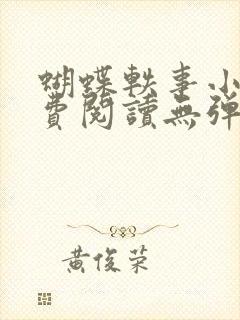 蝴蝶軼事小
費閱讀無彈
黃俊荣